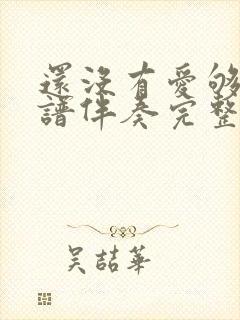 還沒有愛够
譜伴奏完整
吴喆華